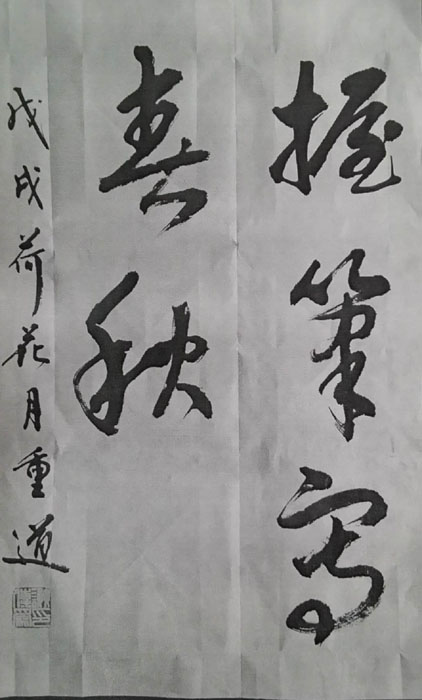 握筆寫
春秋
戊戌荷花月重道